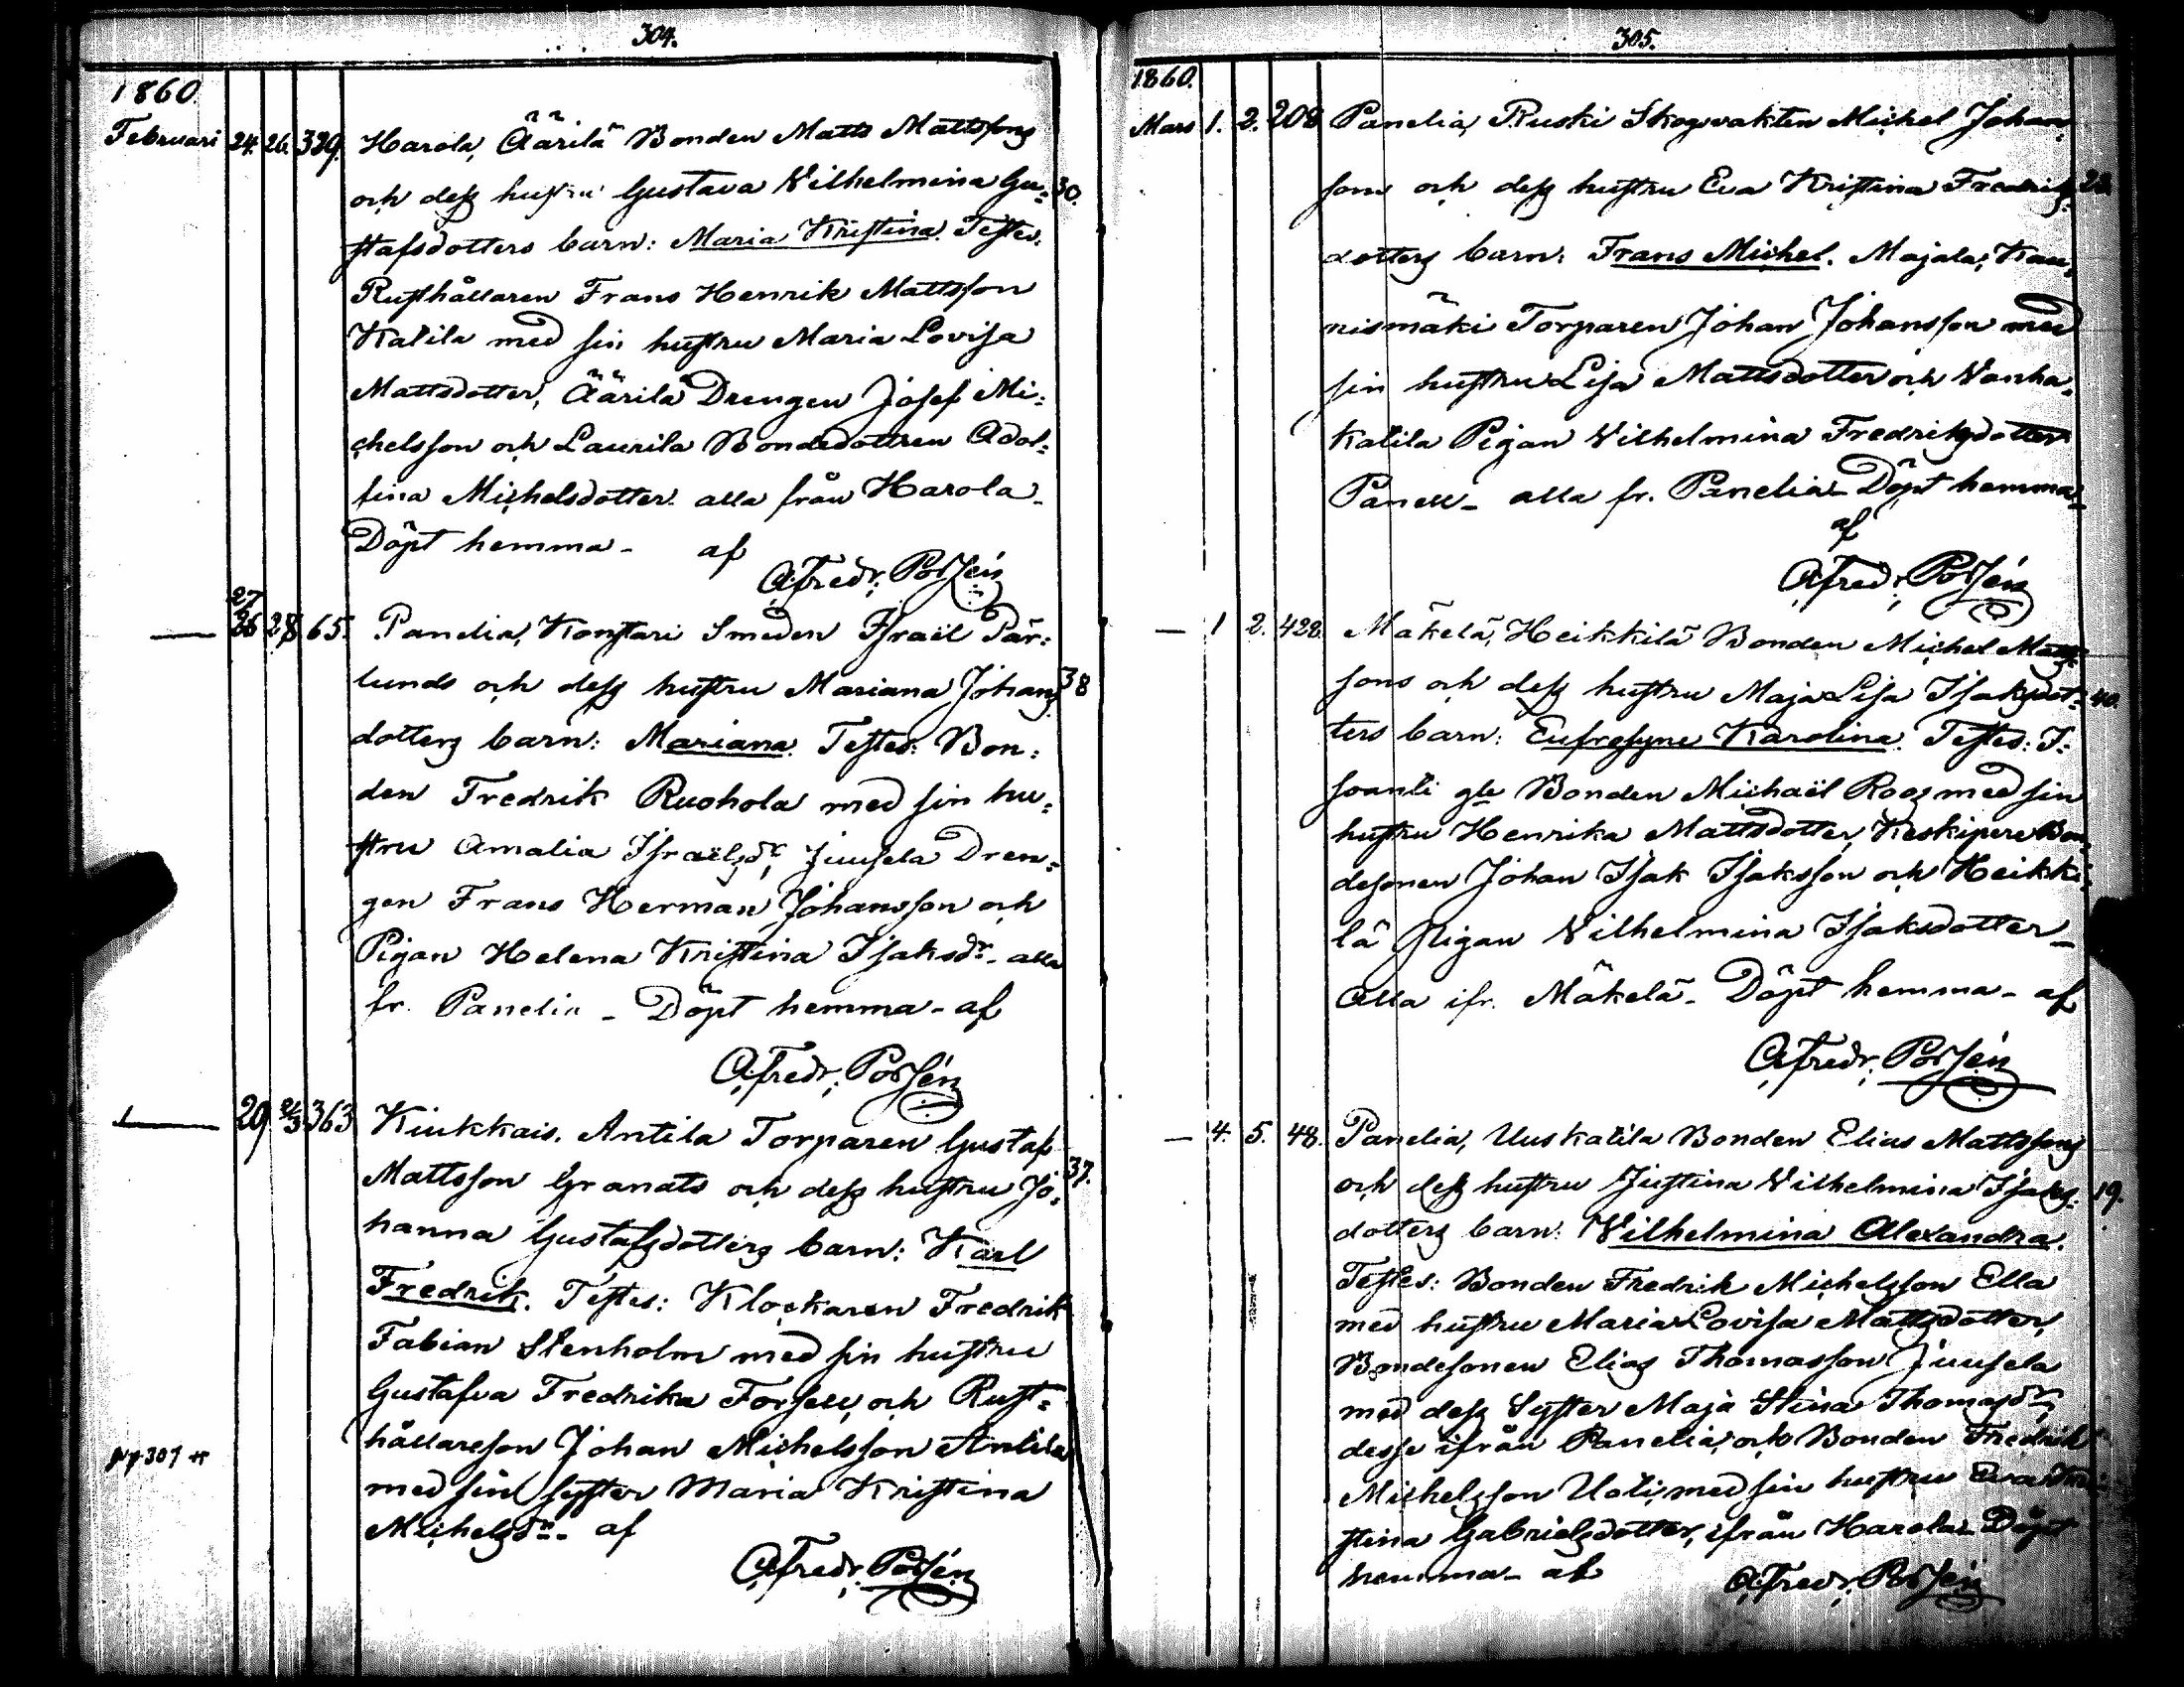 304.
1860.
Februari 24. 26. 329. Harola, Äärilä Bonden Matts Mattssons
och dess hustru Gustava Wilhelmina Gu= 30.
stafsdotters barn: Maria Kristina. Testes:
Rusthållaren Frans Henrik Mattsson
Katila med sin hustru Maria Lovisa
Mattsdotter, Äärilä Drengen Josef Mi=
chelsson och Laurila Bondedottren Adol=
fina Michelsdotter. alla från Harola -
Döpt hemma - af
A. Fredr. Polsén
27
— 26 28. 65. Panelia, Konstari Smeden Israël Pär=
lunds och dess hustru Mariana Johans 38
dotters barn: Mariana. Testes: Bon=
den Fredrik Ruohola med sin hu=
stru Amalia Israëlsdr, Juusela Dren=
gen Frans Herman Johansson och
Pigan Helena Kristina Isaksdr - alla
fr. Panelia - Döpt hemma - af
A. Fredr. Polsén
— 29. 2/3 363 Kiukkais. Antila Torparen Gustaf
Mattsson Granats och dess hustru Jo= 37.
hanna Gustafsdotters barn: Karl
Fredrik. Testes: Klockaren Fredrik
Fabian Stenholm med sin hustru
Gustafva Fredrika Forsell, och Rust=
hållareson Johan Michelsson Antila
med sin syster Maria Kristina
Michelsdr - af
A. Fredr. Polsén
307
305.
1860.
Mars 1. 2. 208 Panelia, Ruski Skogvakten Michel Johan=
sons och dess hustru Eva Kristina Fredriks=
dotters barn: Frans Michel. Majala, Kau=
nismäki Torparen Johan Johansson med
sin hustru Lisa Mattsdotter och Vanha=
Katila Pigan Wilhelmina Fredriksdotter
Panell - alla fr. Panelia - Döpt hemma -
af
A. Fredr. Polsén
— 1 2. 428. Mäkelä, Heikkilä Bonden Michel Matts=
sons och dess hustru Maja Lisa Isaksdot= 40.
ters barn: Eufrosyne Karolina. Testes: I=
soanti gle Bonden Michaël Roos med sin
hustru Henrika Mattsdotter, Keskipere Bon=
desonen Johan Isak Isaksson och Heikki=
lä Pigan Wilhelmina Isaksdotter -
Alla ifr. Mäkelä - Döpt hemma - af
A. Fredr. Polsén
— 4. 5. 48. Panelia, Uuskatila Bonden Elias Mattssons
och dess hustru Justina Wilhelmina Isaks= 19.
dotters barn: Wilhelmina Alexandra.
Testes: Bonden Fredrik Michelsson Ella
med hustru Maria Lovisa Mattsdotter,
Bondesonen Elias Thomasson Juusela
med dess Syster Maja Stina Thomasdr,
desse ifrån Panelia, och Bonden Fredrik
Michelsson Uoti, med sin hustru Eva Kri=
stina Gabrielsdotter, ifrån Harola - Döpt
hemma - af
A. Fredr. Polsén